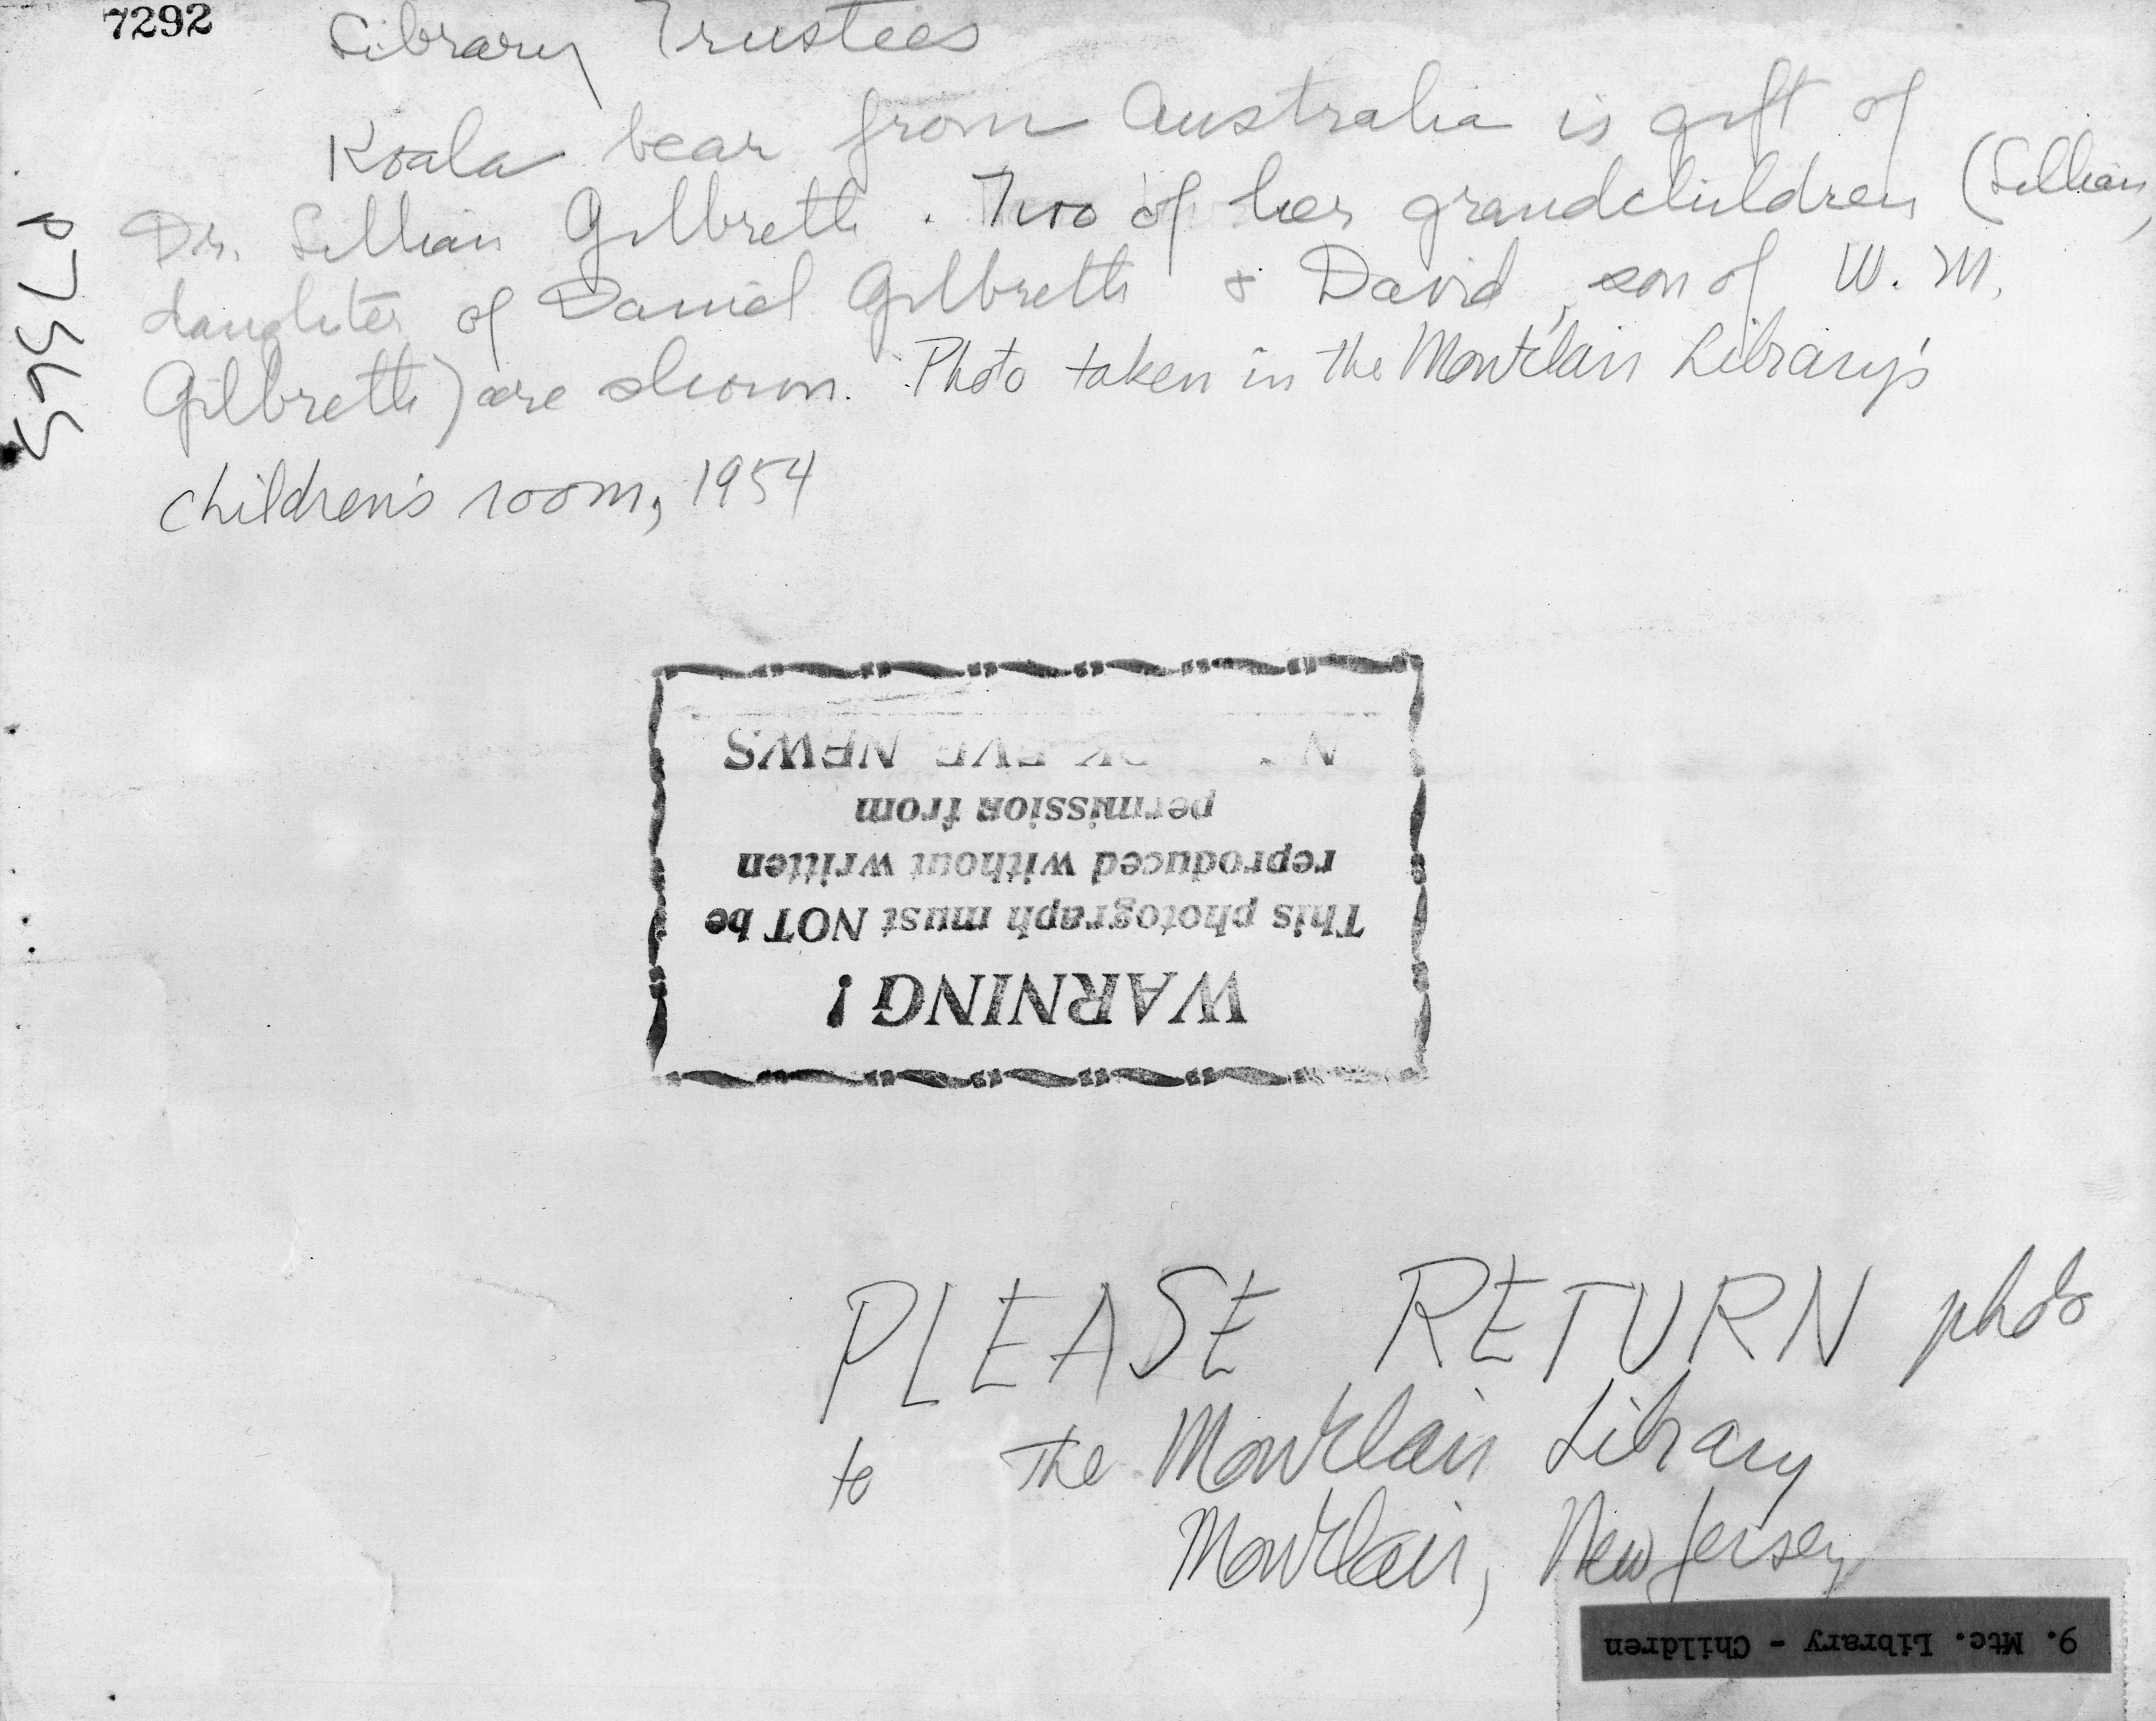 7292
Library Trustees
Koala bear from Australia is gift of
Dr. Lillian Gilbreth. Two of her grandchildren (Lillian,
daughter of Daniel Gilbreth & David, son of W. M.
Gilbreth) are shown. Photo taken in the Montclair Library's
children's room, 1954
WARNING!
This photograph must NOT be
reproduced without written
permission from
EVE NEWS
PLEASE RETURN photo
to the Montclair Library
Montclair, New Jersey
9. Mtc. Library - Children